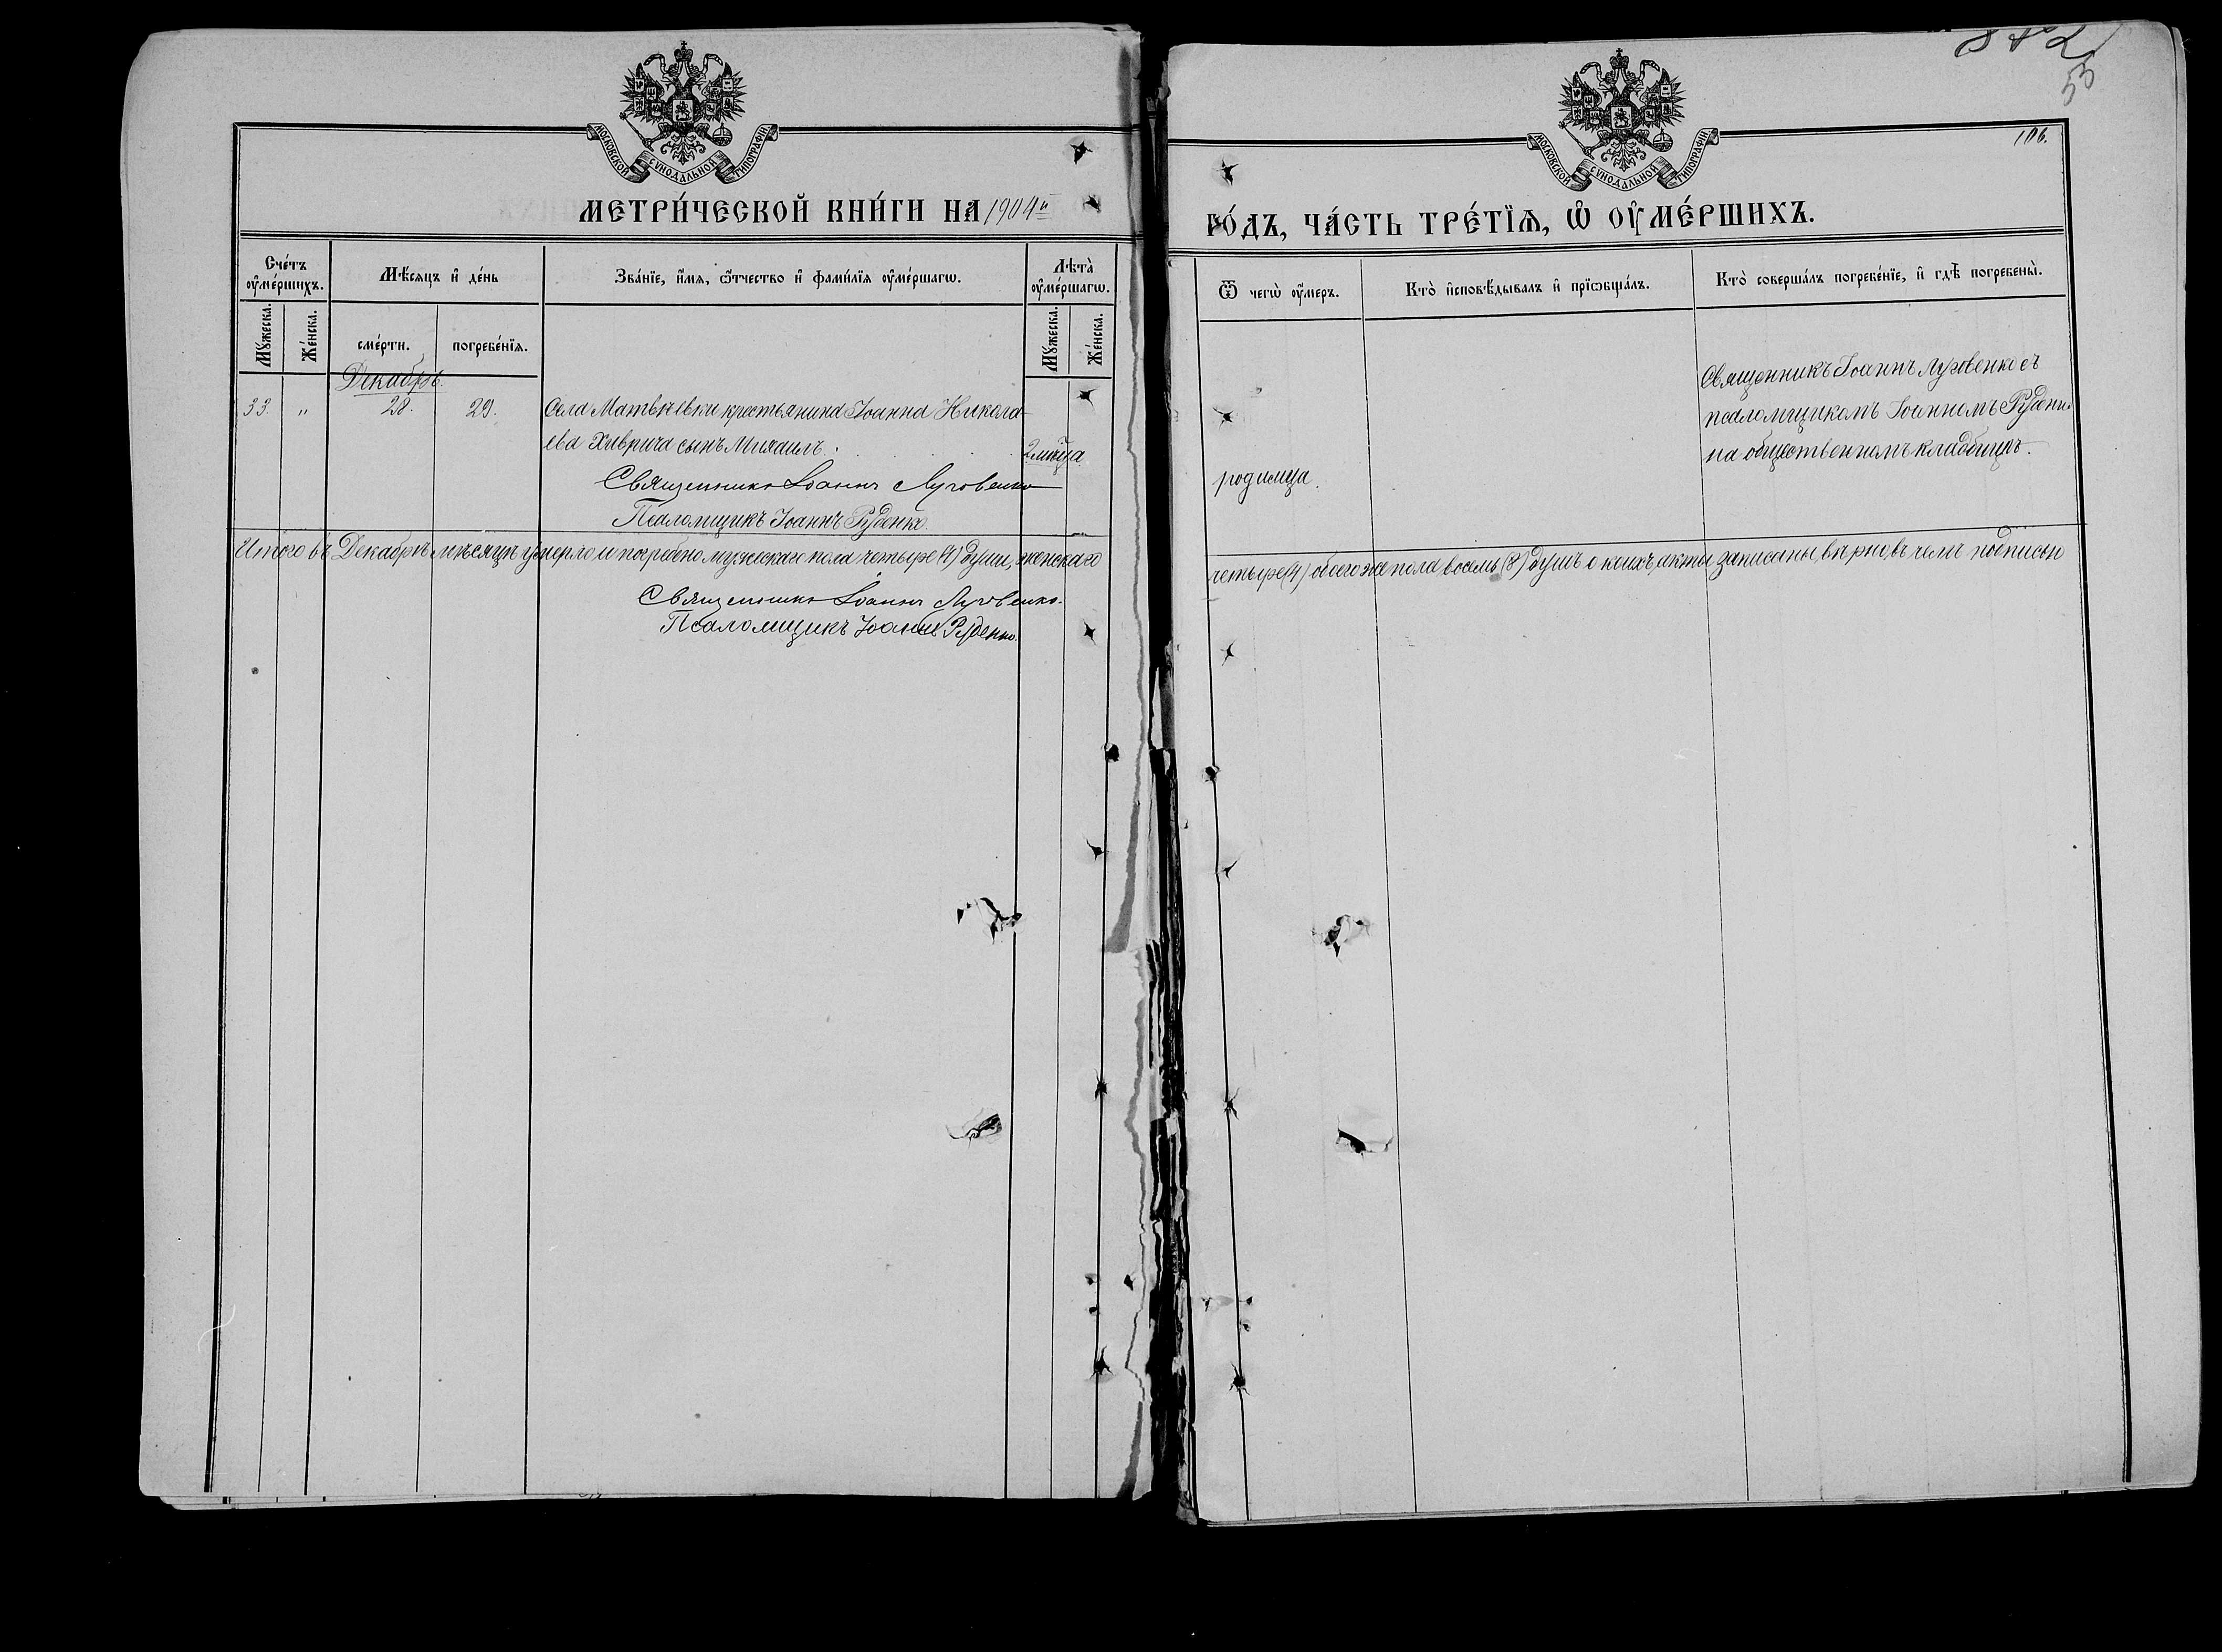 МОСКОВСКОЙ СѴНОДАЛЬНОЙ ТИПОГРАФІИ
МЕТРИ́ЧЕСКОЙ КНИ́ГИ НА 1904й
Сче́тъ ᲂу҆ме́ршихъ.
Мѣ́сяцъ и҆ де́нь
Зва́нїе, и҆́мя, ѻ҆́тчество и҆ фами́лїя ᲂу҆ме́ршагѡ.
Лѣта̀ ᲂу҆ме́ршагѡ.
Мꙋ́жеска.
Же́нска.
сме́рти.
погребе́нїя.
Мꙋ́жеска.
Же́нска.
Декабрь.
33. " 28. 29. Села Матвѣевки крестьянина Іоанна Никола-
ева Хиврича сынъ Михаилъ. 2 мѣсяца
Священникъ Іоаннъ Луговенко
Псаломщикъ Іоаннъ Руденко.
Итого въ Декабрѣ мѣсяцѣ умерло и погребено мужескаго пола четыре (4) души, женскаго
Священникъ Іоаннъ Луговенко.
Псаломщикъ Іоаннъ Руденко.
53
106.
МОСКОВСКОЙ СѴНОДАЛЬНОЙ ТИПОГРАФІИ
ГО́ДЪ, ЧА́СТЬ ТРЕ́ТЇѦ, Ѡ҆ ОУ҆МЕ́РШИХЪ.
Ѿ чегѡ̀ ᲂу҆́меръ.
Кто̀ и҆сповѣ́дывалъ и҆ прїѡбща́лъ.
Кто̀ соверша́лъ погребе́нїе, и҆ гдѣ̀ погребены̀.
Священникъ Іоаннъ Луговенко съ
псаломщикомъ Іоанномъ Руденко
на общественномъ кладбищѣ.
родимца.
четыре (4) обоего же пола восемь (8) душъ о коихъ акты записаны вѣрно, въ чемъ подписью